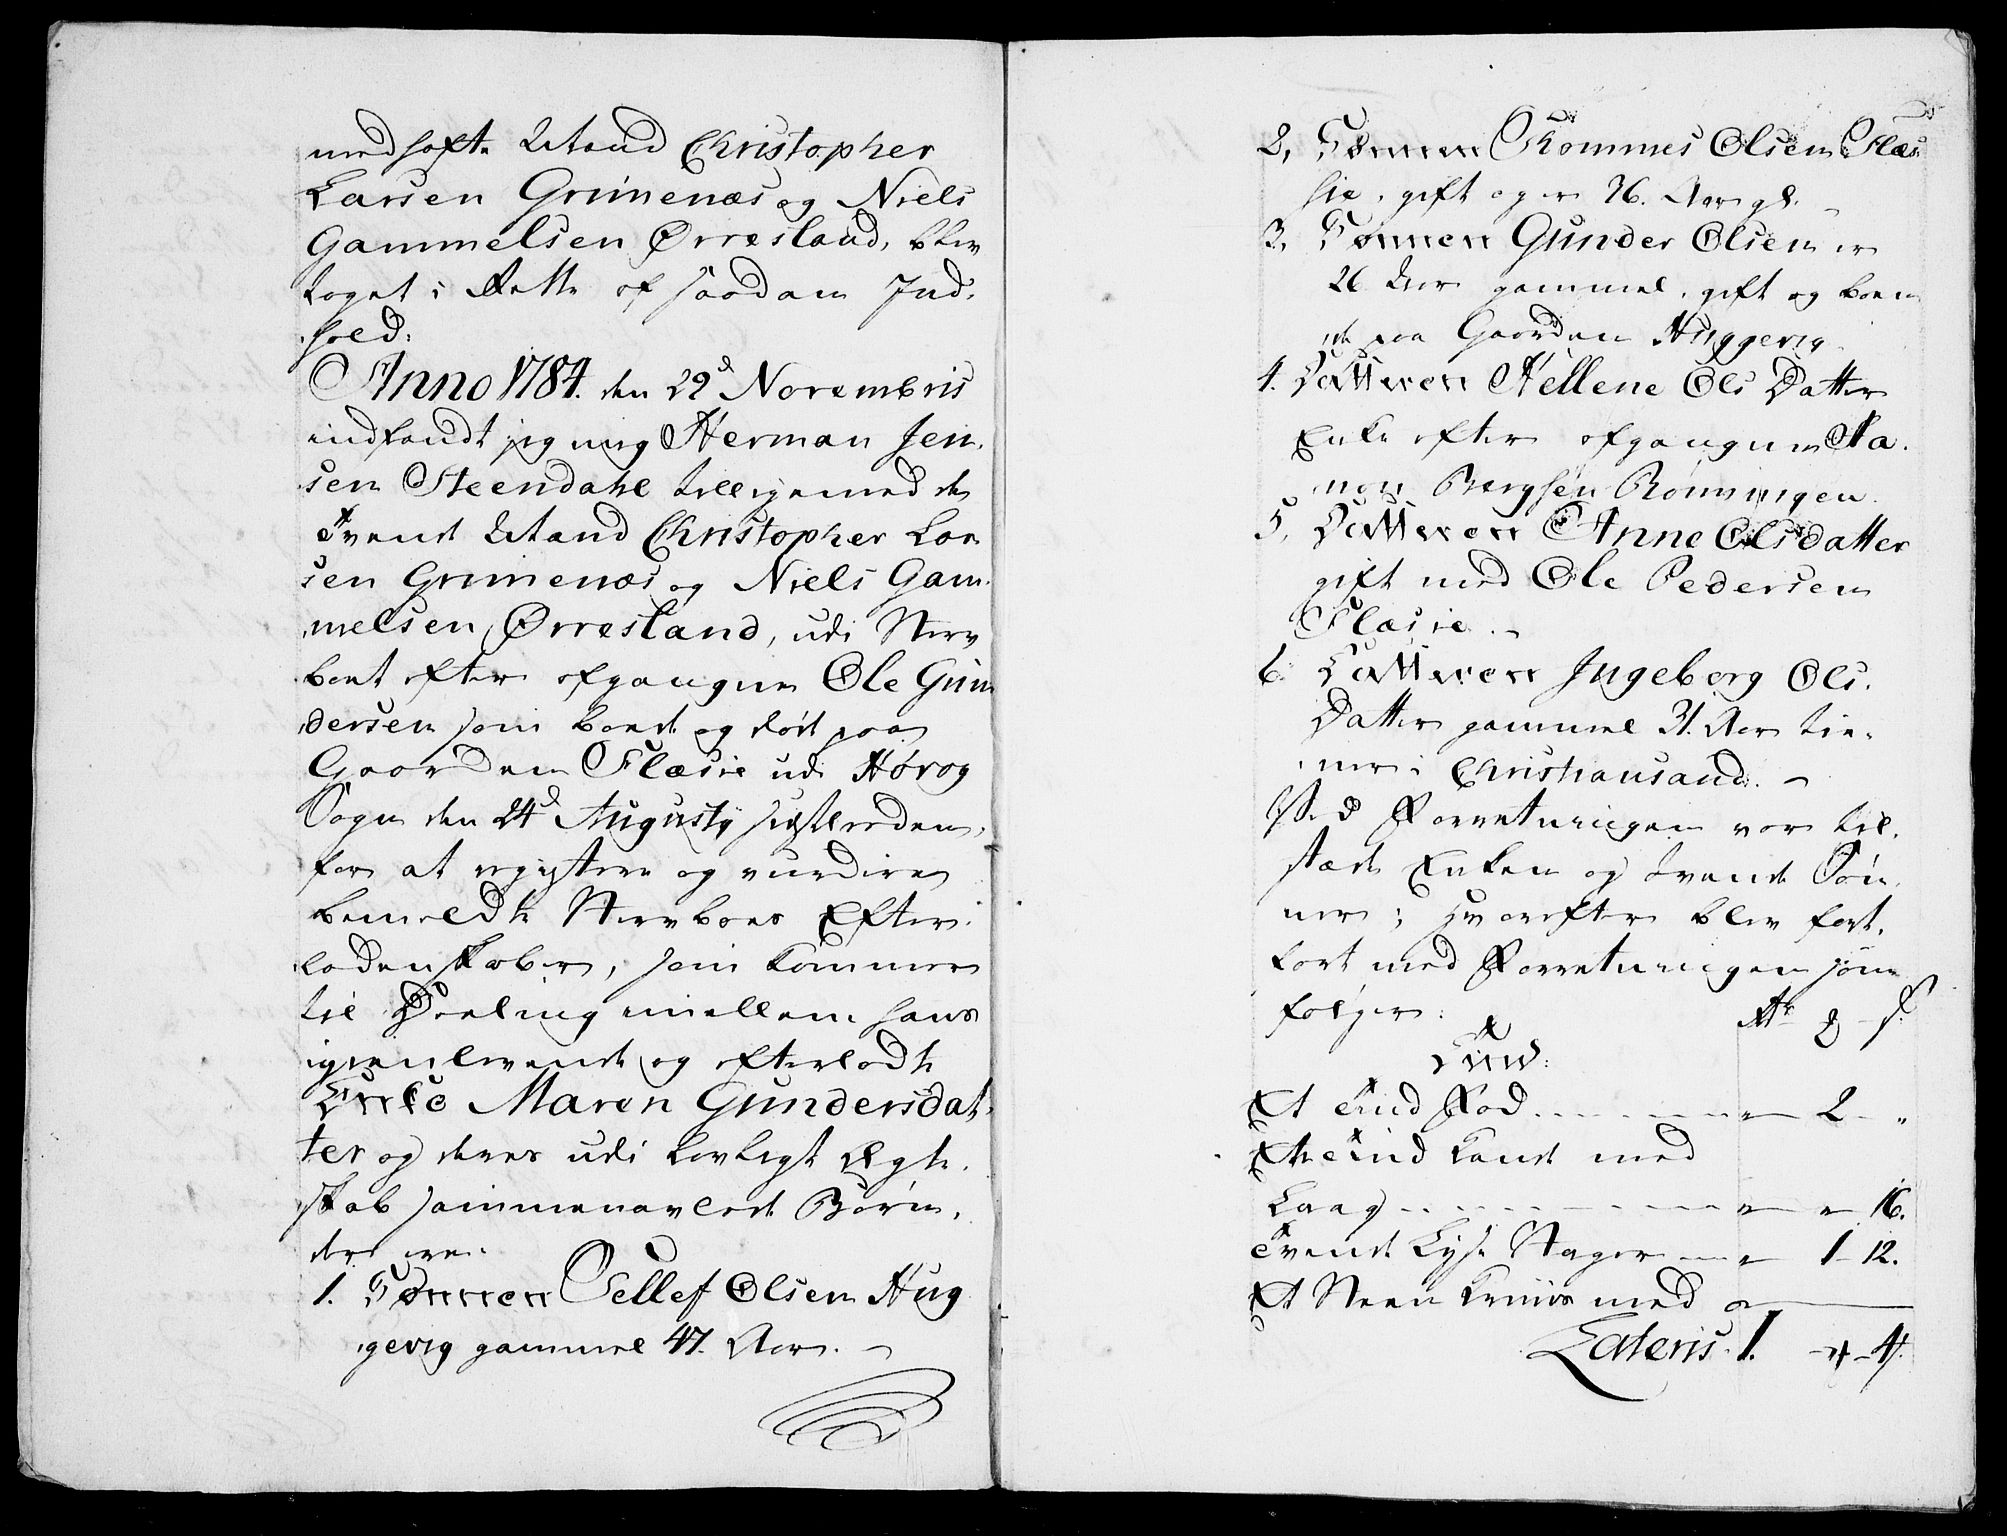 medhafte Utaud Christopher
Larsen Grimenæs og Niels
Gammelsen Ørresland, blev
taget i Rette af saadan Ind-
hold:
Anno 1784. den 29d Novembris
indfandt jeg mig Herman Jen-
sen Steendahl tilligemed de
tvende Utaud Christopher Lar
sen Grimenæs og Niels Gam-
melsen Ørresland, udi Sterv
boet efter afgangne Ole Gun
dersen som boede og døde paa
Gaarden Flæsie udi Høvog
Sogn den 24d Augusty sidstleeden,
for at registere og vurdere
bemeldte Stervboes Efter-
ladenskaber, som kommer
til Deeling imellem hans
igienlevende og efterladte
Enke Maren Gundersdat-
ter og deres udi lovligt Ægte-
skab sammenavlede Børn,
der ere:
1. Sønnen Tellef Olsen Hug
gevig gammel 47. Aar. -
2, Sønnen Thommes Olsen Flæs
sie, gift og er 36. Aar gl. -
3, Sønnen Gunder Olsen er
26 Aar gammel, gift og boen
de paa Gaarden Huggevig
4. Datteren Hellene Ols Datter
Enke efter afgangne Aa-
non Bergsen Rønningen.
5, Datteren Anne Olsdatter
gift med Ole Pedersen
Flæsie. -
6. Datteren Ingeborg Ols-
Datter gammel 31. Aar tie-
ner i Christiansand. -
Ved Forretningen var til-
stæde Enken og tvende Søn-
ner; hvorefter blev fort-
fart med Forretningen som
følger: Rdr ₰ s.
Tind:
Et tind Fad - - - - " 2 - "
Et tind Kande med
Laag - - - - " " 16.
Tvende Lyse Stager - " 1 - 12.
Et Steen Kruus med
Lateris. 1. - 4 - 4.